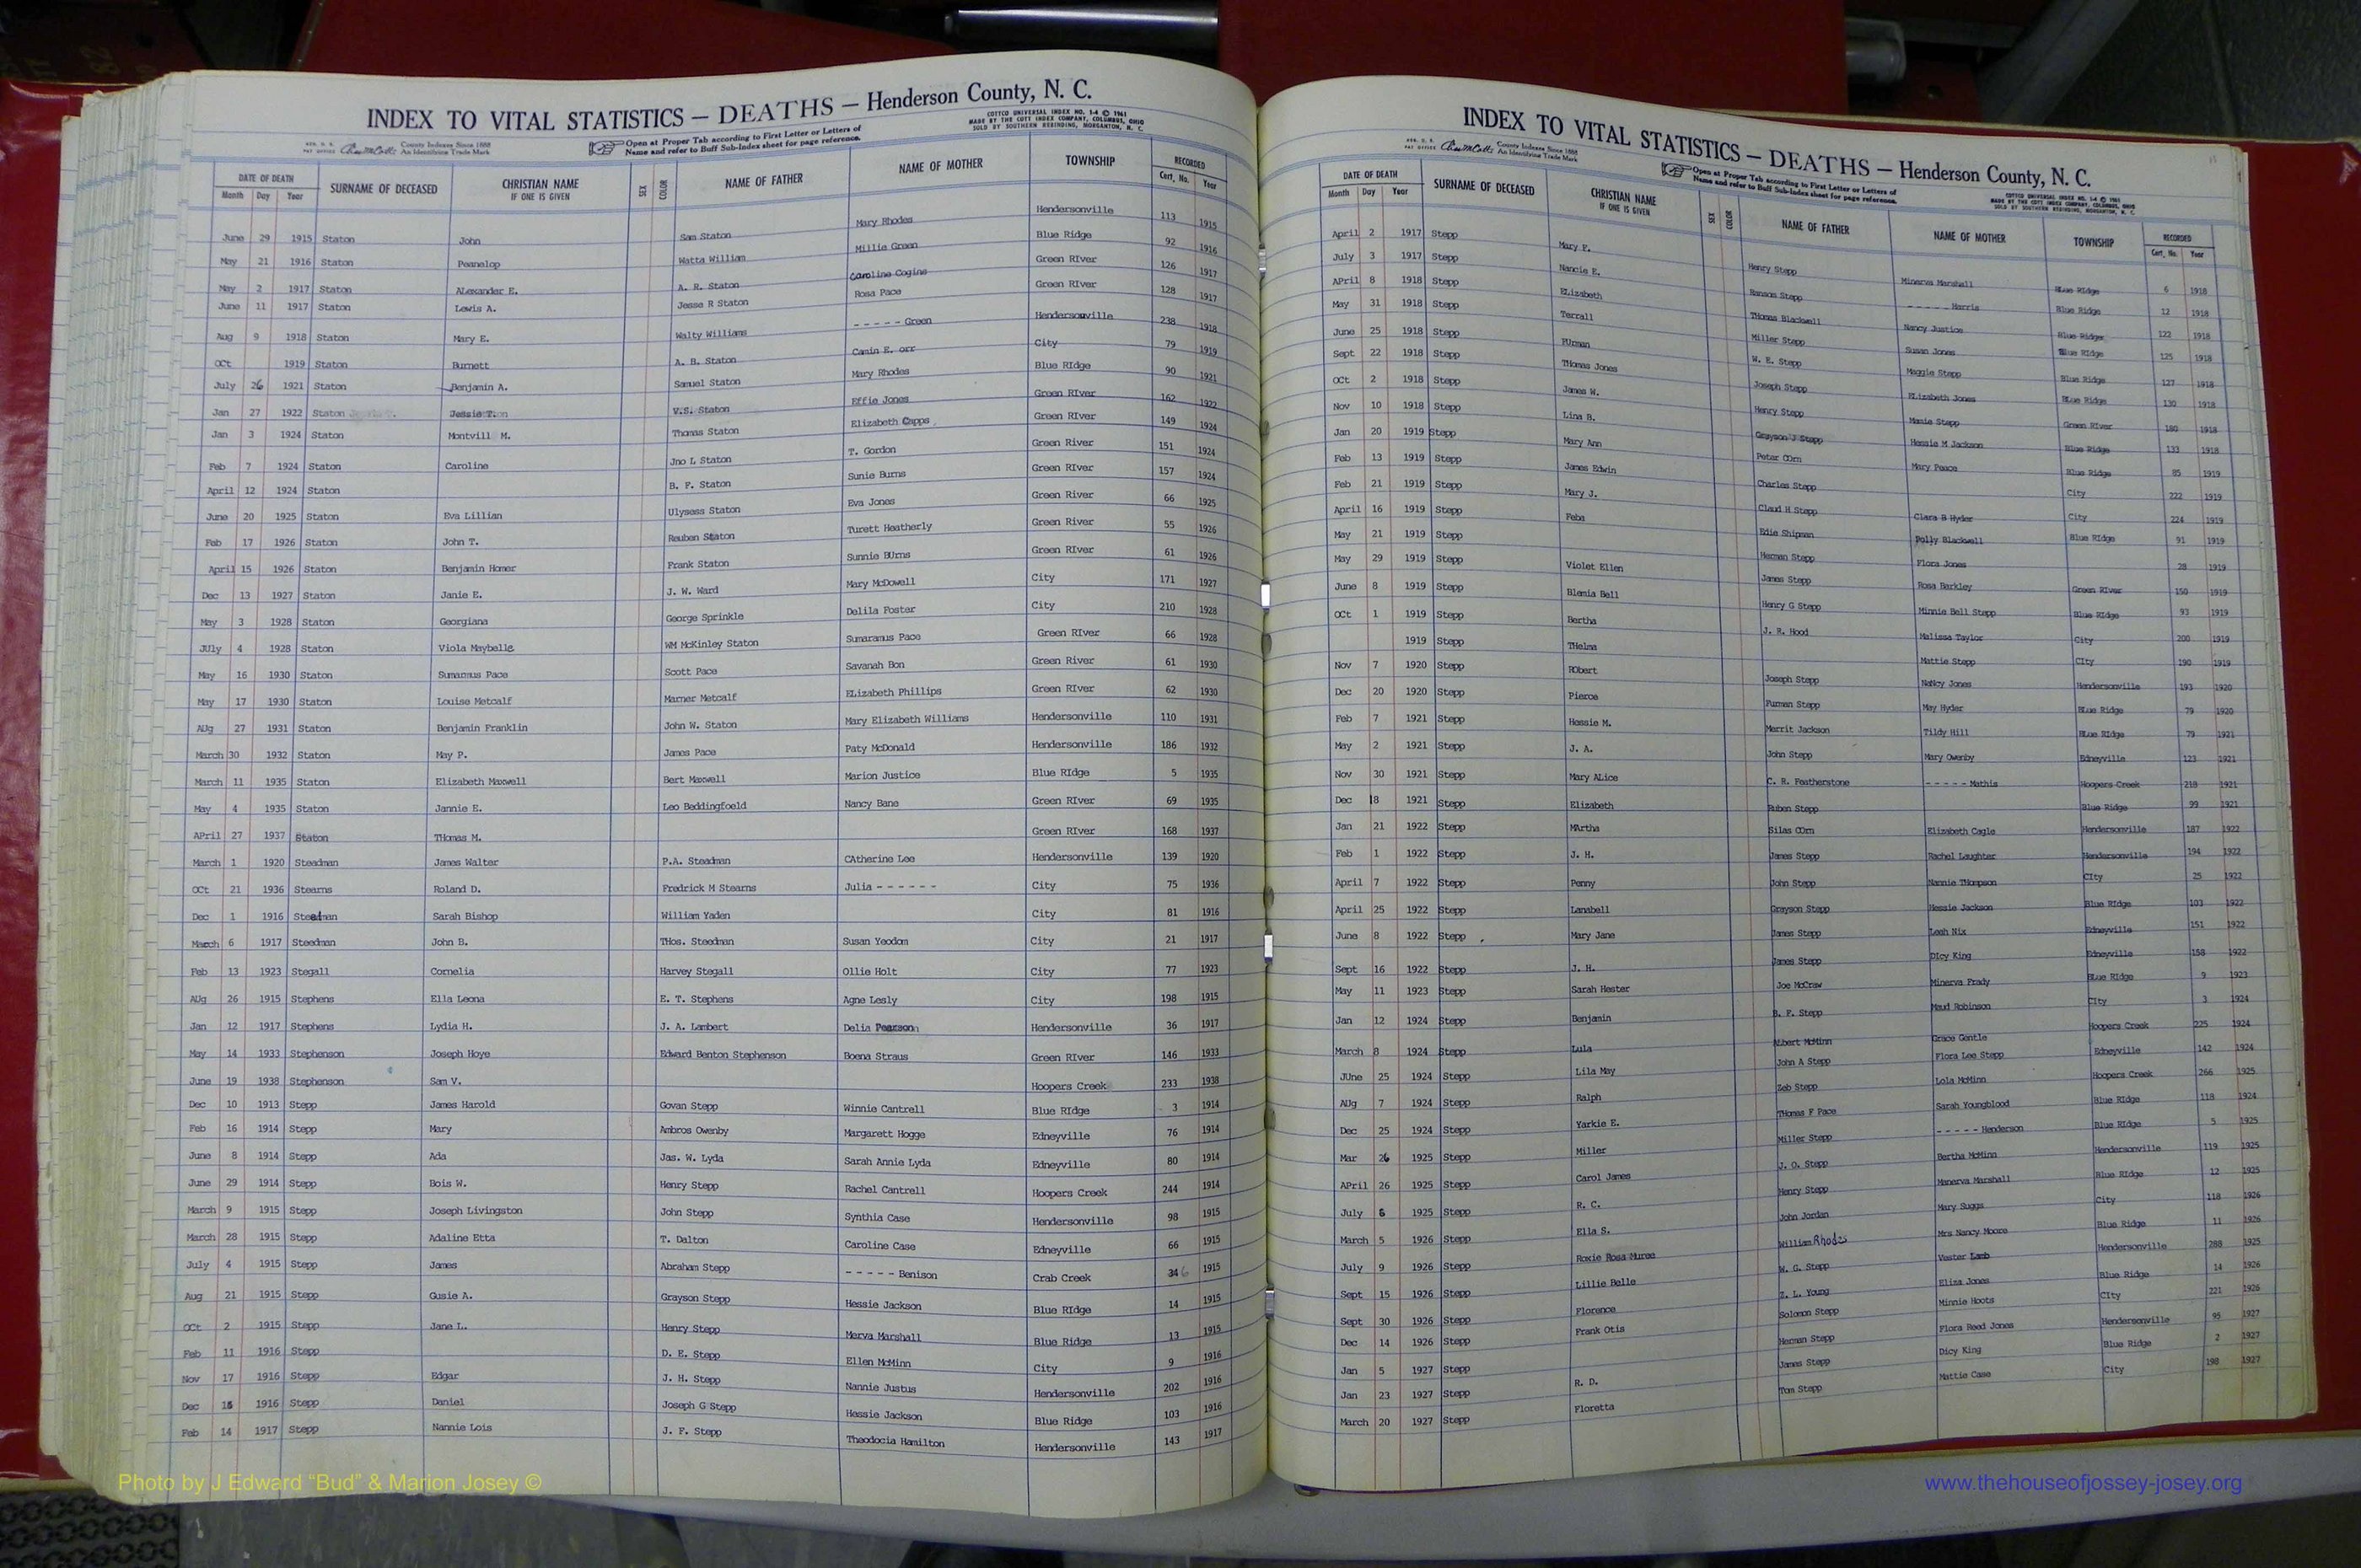 INDEX TO VITAL STATISTICS — DEATHS — Henderson County, N. C.
COTTCO UNIVERSAL INDEX NO. 1-4 © 1961
MADE BY THE COTT INDEX COMPANY, COLUMBUS, OHIO
SOLD BY SOUTHERN REBINDING, MORGANTON, N. C.
County Indexes Since 1888
An Identifying Trade Mark
Open at Proper Tab according to First Letter or Letters of
Name and refer to Buff Sub-Index sheet for page reference.
DATE OF DEATH SURNAME OF DECEASED CHRISTIAN NAME IF ONE IS GIVEN SEX COLOR NAME OF FATHER NAME OF MOTHER TOWNSHIP RECORDED
Month Day Year Cert. No. Year
June 29 1915 Staton John Sam Staton Mary Rhodes Hendersonville 113 1915
May 21 1916 Staton Peanelop Watta William Millie Green Blue Ridge 92 1916
May 2 1917 Staton ALexander E. A. R. Staton Caroline Cogins Green RIver 126 1917
June 11 1917 Staton Lewis A. Jesse R Staton Rosa Pace Green RIver 128 1917
Aug 9 1918 Staton Mary E. Walty Williams - - - - - Green Hendersonville 238 1918
OCt 1919 Staton Burnett A. B. Staton Camin E. orr City 79 1919
July 26 1921 Staton Benjamin A. Samuel Staton Mary Rhodes Blue RIdge 90 1921
Jan 27 1922 Staton Jessie T. V.S. Staton Effie Jones Green RIver 162 1922
Jan 3 1924 Staton Montvill M. Thomas Staton Elizabeth Capps Green RIver 149 1924
Feb 7 1924 Staton Caroline Jno L Staton T. Gordon Green River 151 1924
April 12 1924 Staton B. F. Staton Sunie Burns Green RIver 157 1924
June 20 1925 Staton Eva Lillian Ulysess Staton Eva Jones Green River 66 1925
Feb 17 1926 Staton John T. Reuben Staton Turett Heatherly Green River 55 1926
April 15 1926 Staton Benjamin Homer Frank Staton Sunnie BUrns Green RIver 61 1926
Dec 13 1927 Staton Janie E. J. W. Ward Mary McDowell City 171 1927
May 3 1928 Staton Georgiana George Sprinkle Delila Foster City 210 1928
JUly 4 1928 Staton Viola Maybelle WM McKinley Staton Sumaramus Pace Green RIver 66 1928
May 16 1930 Staton Sumamus Pace Scott Pace Savanah Bon Green River 61 1930
May 17 1930 Staton Louise Metcalf Marner Metcalf ELizabeth Phillips Green RIver 62 1930
AUg 27 1931 Staton Benjamin Franklin John W. Staton Mary Elizabeth Williams Hendersonville 110 1931
March 30 1932 Staton May P. James Pace Paty McDonald Hendersonville 186 1932
March 11 1935 Staton Elizabeth Maxwell Bert Maxwell Marion Justice Blue RIdge 5 1935
May 4 1935 Staton Jannie E. Leo Beddingfoeld Nancy Bane Green RIver 69 1935
APril 27 1937 Staton THomas M. Green RIver 168 1937
March 1 1920 Steadman James Walter P.A. Steadman CAtherine Lee Hendersonville 139 1920
OCt 21 1936 Stearns Roland D. Fredrick M Stearns Julia - - - - - - City 75 1936
Dec 1 1916 Steadman Sarah Bishop William Yaden City 81 1916
March 6 1917 Steedman John B. THos. Steedman Susan Yeodom City 21 1917
Feb 13 1923 Stegall Cornelia Harvey Stegall Ollie Holt City 77 1923
AUg 26 1915 Stephens Ella Leona E. T. Stephens Agne Lesly City 198 1915
Jan 12 1917 Stephens Lydia H. J. A. Lambert Delia Pearson Hendersonville 36 1917
May 14 1933 Stephenson Joseph Hoye Edward Benton Stephenson Boena Straus Green RIver 146 1933
June 19 1938 Stephenson Sam V. Hoopers Creek 233 1938
Dec 10 1913 Stepp James Harold Govan Stepp Winnie Cantrell Blue RIdge 3 1914
Feb 16 1914 Stepp Mary Ambros Owenby Margarett Hogge Edneyville 76 1914
June 8 1914 Stepp Ada Jas. W. Lyda Sarah Annie Lyda Edneyville 80 1914
June 29 1914 Stepp Bois W. Henry Stepp Rachel Cantrell Hoopers Creek 244 1914
March 9 1915 Stepp Joseph Livingston John Stepp Synthia Case Hendersonville 98 1915
March 28 1915 Stepp Adaline Etta T. Dalton Caroline Case Edneyville 66 1915
July 4 1915 Stepp James Abraham Stepp - - - - - Benison Crab Creek 346 1915
Aug 21 1915 Stepp Gusie A. Grayson Stepp Hessie Jackson Blue RIdge 14 1915
OCt 2 1915 Stepp Jane L. Henry Stepp Merva Marshall Blue Ridge 13 1915
Feb 11 1916 Stepp D. E. Stepp Ellen McMinn City 9 1916
Nov 17 1916 Stepp Edgar J. H. Stepp Nannie Justus Hendersonville 202 1916
Dec 15 1916 Stepp Daniel Joseph G Stepp Hessie Jackson Blue Ridge 103 1916
Feb 14 1917 Stepp Nannie Lois J. F. Stepp Theodocia Hamilton Hendersonville 143 1917
INDEX TO VITAL STATISTICS — DEATHS — Henderson County, N. C.
COTTCO UNIVERSAL INDEX NO. 1-4 © 1961
MADE BY THE COTT INDEX COMPANY, COLUMBUS, OHIO
SOLD BY SOUTHERN REBINDING, MORGANTON, N. C.
County Indexes Since 1888
An Identifying Trade Mark
Open at Proper Tab according to First Letter or Letters of
Name and refer to Buff Sub-Index sheet for page reference.
DATE OF DEATH SURNAME OF DECEASED CHRISTIAN NAME IF ONE IS GIVEN SEX COLOR NAME OF FATHER NAME OF MOTHER TOWNSHIP RECORDED
Month Day Year Cert. No. Year
April 2 1917 Stepp Mary F. Henry Stepp Minerva Marshall BLue RIdge 6 1918
July 3 1917 Stepp Nancie E. Ransom Stepp - - - - - Harris Blue Ridge 12 1918
APril 8 1918 Stepp ELizabeth THomas Blackwell Nancy Justice Blue Ridge 122 1918
May 31 1918 Stepp Terrall Miller Stepp Susan Jones Blue RIdge 125 1918
June 25 1918 Stepp FUrman W. E. Stepp Maggie Stepp Blue Ridge 127 1918
Sept 22 1918 Stepp THomas Jones Joseph Stepp ELizabeth Jones BLue Ridge 130 1918
OCt 2 1918 Stepp James W. Henry Stepp Mamie Stepp Green RIver 180 1918
Nov 10 1918 Stepp Lina B. Grayson J Stepp Hessie M Jackson Blue Ridge 133 1918
Jan 20 1919 Stepp Mary Ann Peter COrn Mary Peace Blue Ridge 85 1919
Feb 13 1919 Stepp James Edwin Charles Stepp City 222 1919
Feb 21 1919 Stepp Mary J. Claud H Stepp Clara B Hyder City 224 1919
April 16 1919 Stepp Feba Edie Shipman Polly Blackwell Blue RIdge 91 1919
May 21 1919 Stepp Herman Stepp Flora Jones 28 1919
May 29 1919 Stepp Violet Ellen James Stepp Rosa Barkley Green RIver 150 1919
June 8 1919 Stepp Blemia Bell Henry G Stepp Minnie Bell Stepp Blue RIdge 93 1919
OCt 1 1919 Stepp Bertha J. R. Hood Malissa Taylor City 200 1919
1919 Stepp THelma Mattie Stepp CIty 190 1919
Nov 7 1920 Stepp RObert Joseph Stepp NaNcy Jones Hendersonville 193 1920
Dec 20 1920 Stepp Pierce Furman Stepp May Hyder BLue Ridge 79 1920
Feb 7 1921 Stepp Hessie M. Merrit Jackson Tildy Hill BLue RIdge 79 1921
May 2 1921 Stepp J. A. John Stepp Mary Owenby Edneyville 123 1921
Nov 30 1921 Stepp Mary ALice C. R. Featherstone - - - - - Mathis Hoopers Creek 218 1921
Dec 8 1921 Stepp Elizabeth Ruben Stepp Blue Ridge 99 1921
Jan 21 1922 Stepp MArtha Silas COrn Elizabeth Cagle Hendersonville 187 1922
Feb 1 1922 Stepp J. H. James Stepp Rachel Laughter Hendersonville 194 1922
April 7 1922 Stepp Penny John Stepp Nannie THompson CIty 25 1922
April 25 1922 Stepp Lanabell Grayson Stepp Hessie Jackson Blue RIdge 103 1922
June 8 1922 Stepp Mary Jane James Stepp Leah Nix Edneyville 151 1922
Sept 16 1922 Stepp J. H. James Stepp DIcy King Edneyville 158 1922
May 11 1923 Stepp Sarah Hester Joe McCraw Minerva Frady BLue RIdge 9 1923
Jan 12 1924 Stepp Benjamin B. F. Stepp Maud Robinson CIty 3 1924
March 8 1924 Stepp Lula Albert McMinn Grace Gentle Hoopers Creek 225 1924
JUne 25 1924 Stepp Lila May John A Stepp Flora Lee Stepp Edneyville 142 1924
AUg 7 1924 Stepp Ralph Zeb Stepp Lola McMinn Hoopers Creek 266 1925
Dec 25 1924 Stepp Yarkie E. THomas F Pace Sarah Youngblood Blue RIdge 118 1924
Mar 26 1925 Stepp Miller Miller Stepp - - - - - Henderson Blue RIdge 5 1925
APril 26 1925 Stepp Carol James J. O. Stepp Bertha McMinn Hendersonville 119 1925
July 6 1925 Stepp R. C. Henry Stepp Manerva Marshall Blue RIdge 12 1925
March 5 1926 Stepp Ella S. John Jordan Mary Suggs City 118 1926
July 9 1926 Stepp Roxie Rosa Muree William Rhodes Mrs Nancy Moore Blue Ridge 11 1926
Sept 15 1926 Stepp Lillie Belle W. G. Stepp Vester Lamb Hendersonville 288 1925
Sept 30 1926 Stepp Florence Z. L. Young Eliza Jones Blue Ridge 14 1926
Dec 14 1926 Stepp Frank Otis Solomon Stepp Minnie Hoots CIty 221 1926
Jan 5 1927 Stepp Herman Stepp Flora Reed Jones Hendersonville 95 1927
Jan 23 1927 Stepp R. D. James Stepp Dicy King Blue Ridge 2 1927
March 20 1927 Stepp Floretta Tom Stepp Mattie Case City 198 1927
Photo by J Edward “Bud” & Marion Josey ©
www.thehouseofjossey-josey.org